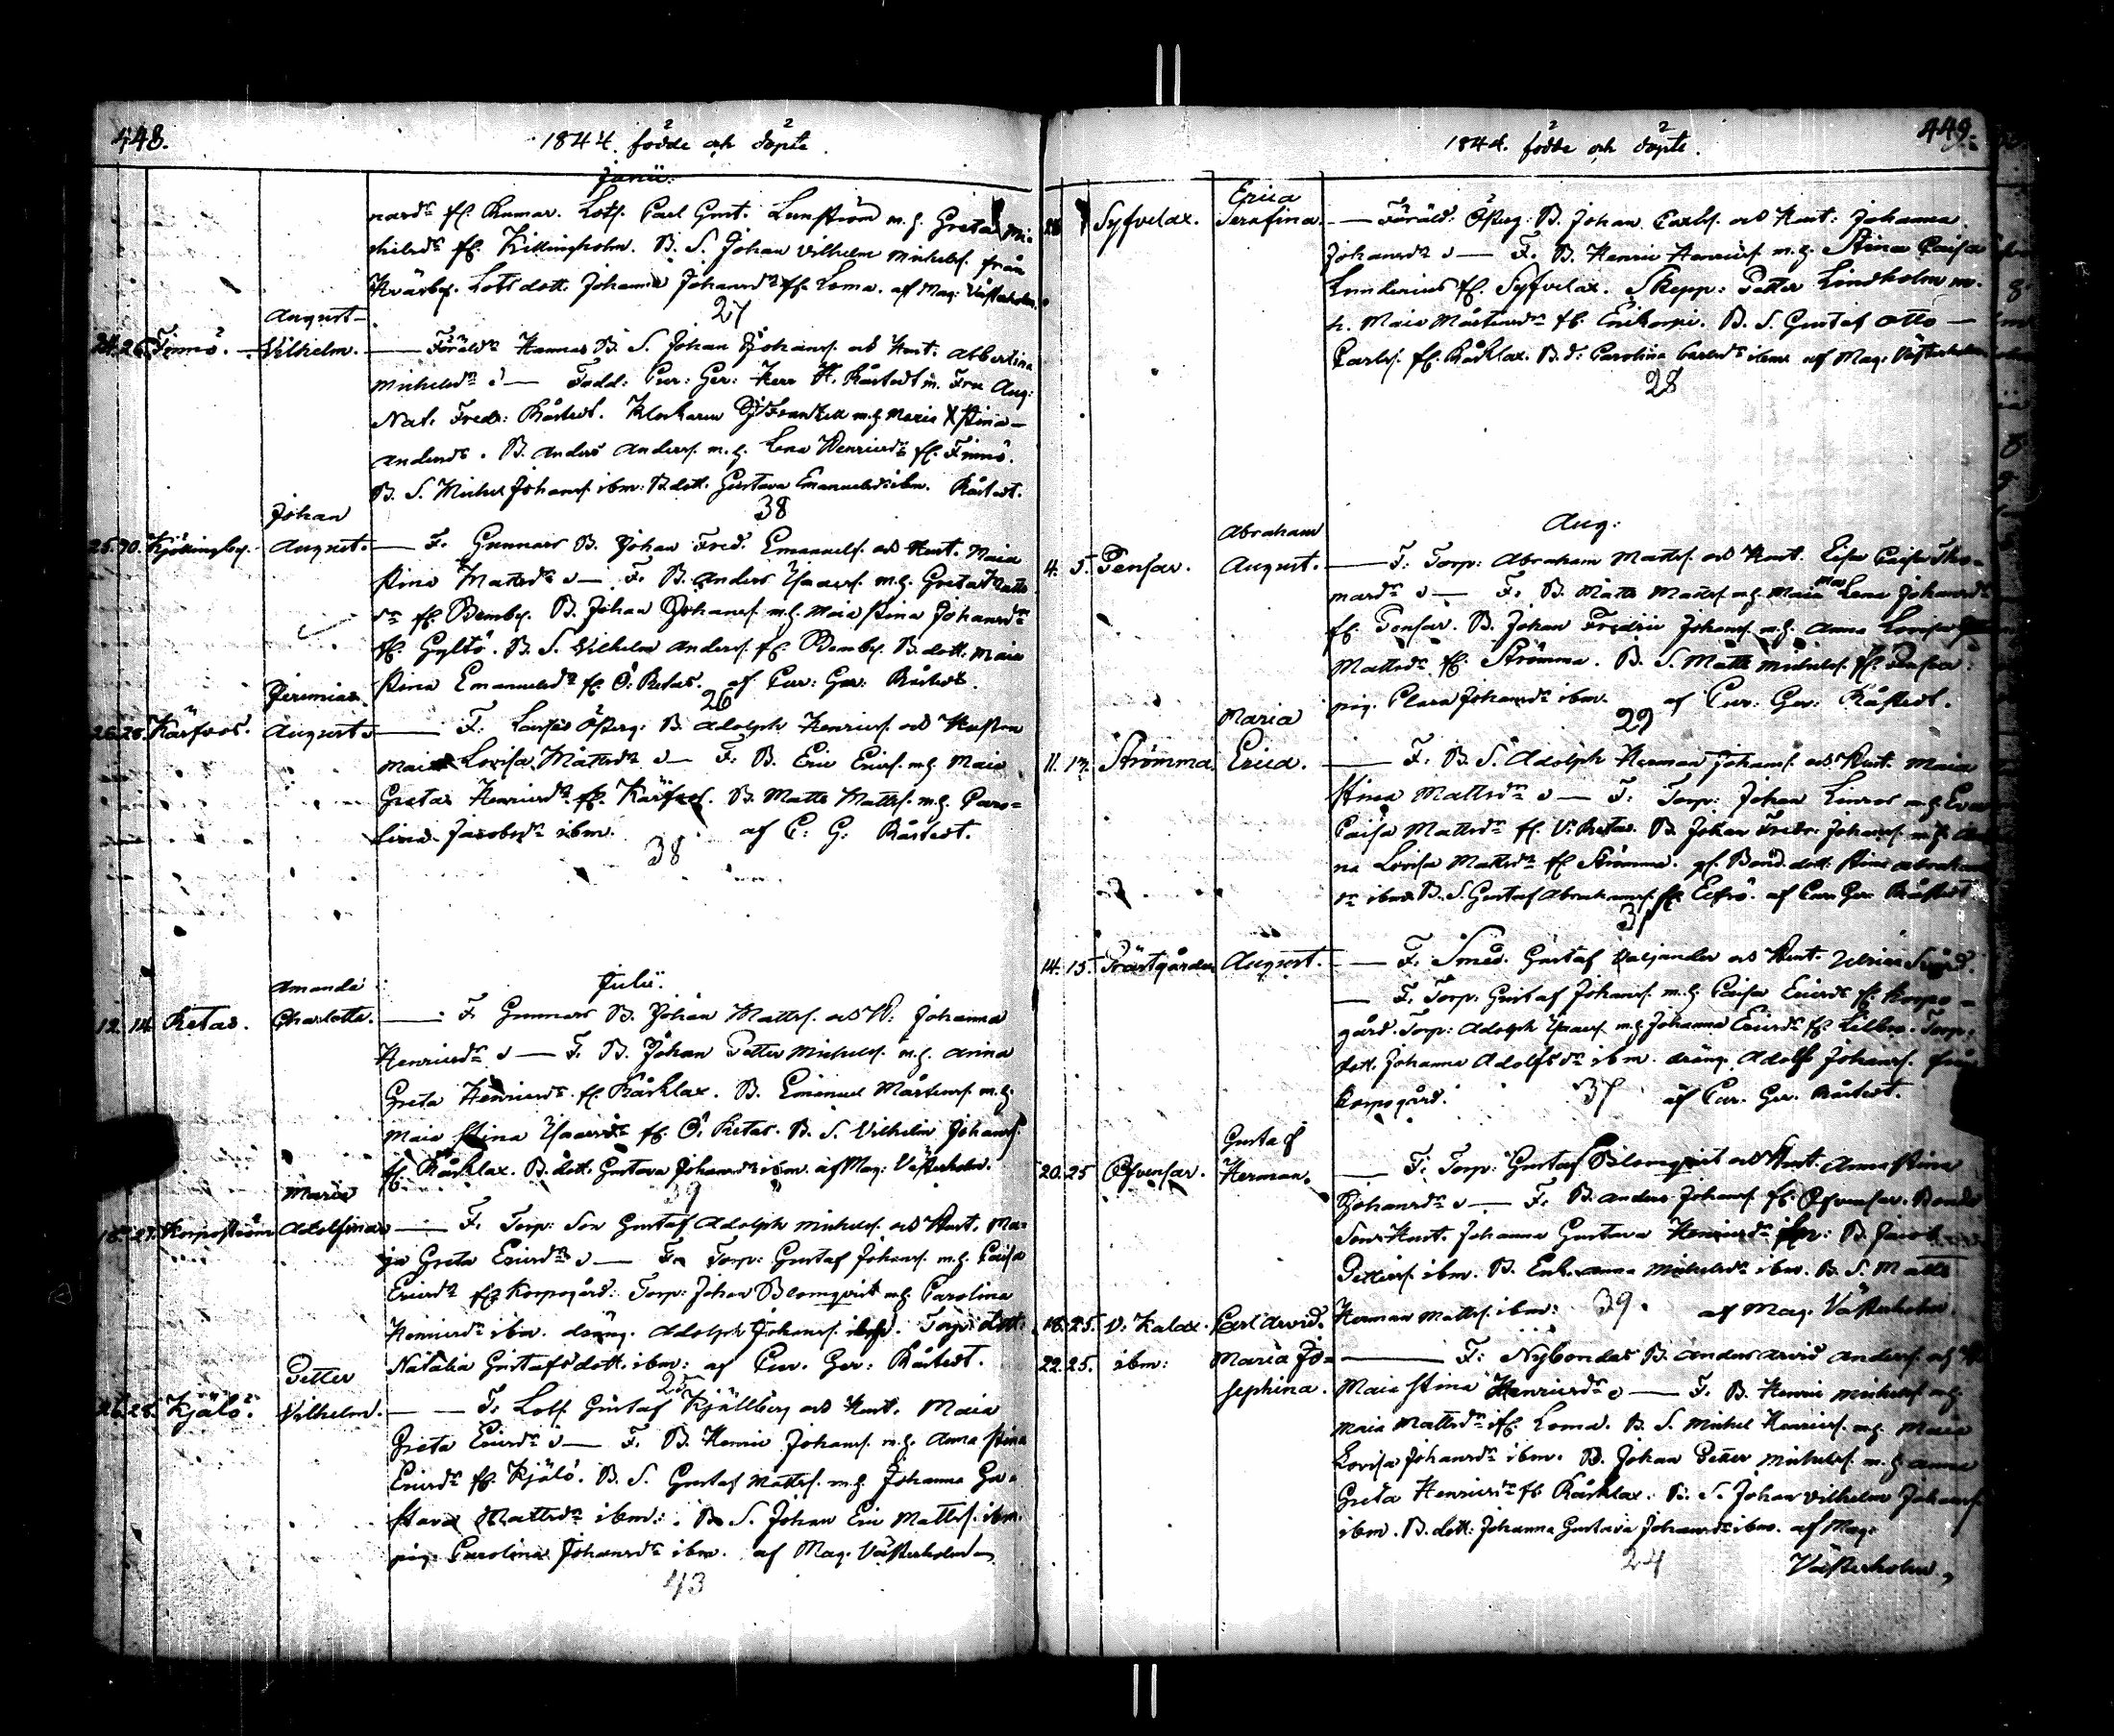 448.
1844. födde och döpte.
Junii.
nardr fr. Rumar. Lots. Carl Gust. Lemström m.h. Greta Mi-
chelsdr fr. Killingholm. B. S. Johan Vilhelm Michels. från
Lotsdott. Johanna Johansdr fr. Loma. af Mag: Västerholm.
27
August
24. 26. Finnö. Vilhelm. Föräldr Hannas B. S. Johan Johans. och Hust. Albertina
Michelsdr Fadd: Cur: Ger: Herr H. Råstedt m. Fru Aug:
Nat. Fredr: Råstedt. Klockaren Frantzell m.h. Maria Stina
Andersdr. B. Anders Anders. m.h. Lena Henricsdr fr. Finnö.
B. S. Michel Johans. ibm: B. dott. Gustava Emanuelsdr ibm. Råstedt.
38
Johan
25. 30. Kjöklingby. August. F. Gunnars B. Johan Fred. Emanuels. och Hust. Maia
Stina Mattsdr F. B. Anders Isaacs. m.h. Greta Matts
dr fr. Bemby. B. Johan Johans. m.h. Maia Stina Johansdr
fr. Gyltö. B. S. Vilhelm Anders. fr. Bemby. B. dott. Maia
Stina Emanuelsdr fr. Ö. Retas. af Cur: Ger: Råstedt.
26
Jeremias
26. 28. Kärfvos. August F. Österg: B. Adolph Henrics. och Hustru
Maia Lovisa Mattsdr F. B. Eric Erics. m.h. Maia
Greta Henricsdr fr. Kärfvos. B. Matts Matts. m.h. Caro-
lina Jacobsdr ibm. af C: G: Råstedt.
38
Julii.
Amanda
12. 14. Retas. Charlotta. F. Gunnars B. Johan Matts. och H: Johanna
Henricsdr F. B. Johan Petter Michels. m.h. Anna
Greta Henricsdr fr. Råsklax. B. Emanuel Mårtens. m.h.
Maia Stina Isaacsdr fr. Ö. Retas. B. S. Vilhelm Johans.
fr. Råsklax. B. dott. Gustava Johansdr ibm. af Mag: Västerholm.
39
Maria
Korpoström Adolfina F. Torp: Son Gustaf Adolph Michels. och Hust. Ma-
ja Greta Ericsdr F. Torp: Gustaf Johans. m.h. Caisa
Ericsdr fr. Korpogård. Torp: Johan Blomqvist m.h. Carolina
Henricsdr ibm. dräng. Adolph Johans. ibm. Torp: dott:
Natalia Gustafsdott. ibm: af Cur. Ger: Råstedt.
25
Petter
26. 28. Kjälö. Vilhelm. F. Lots. Gustaf Kjällberg och Hust. Maia
Greta Ericsdr F. B. Henric Johans. m.h. Anna Stina
Ericsdr fr. Kjälö. B. S. Gustaf Matts. m.h. Johanna Gu-
stava Mattsdr ibm: B. S. Johan Eric Matts. ibm.
pig. Carolina Johansdr ibm. af Mag. Västerholm
43
449.
1844. födde och döpte.
Erica
28 Syfvelax. Serafina. Föräld: Österg: B. Johan Carls. och Hust: Johanna
Johansdr F. B. Henric Henrics. m.h. Stina Caisa
Lunderius fr. Syfvelax. Skepp: Petter Lindholm m.
h. Maia Mårtensdr fr. B. S. Gustaf Otto
Carls. fr. Råsklax. B. d: Carolina Carlsdr ibm af Mag. Västerholm
28
Aug:
Abraham
4. 5. Pensar. August. F: Torp: Abraham Matts. och Hust. Lisa Caisa Tho-
masdr F. B. Matts Matts. m.h. Maia Lena Johansdr
fr. Pensar. B. Johan Fredric Johans. m.h. Anna Lovisa
Mattsdr fr. Strömma. B. S. Matts Michels. fr. Pensar.
pig. Clara Johansdr ibm. af Cur: Ger: Råstedt.
29
Maria
11. Strömma. Erica. F. B. S. Adolph Herman Johans. och Hust. Maia
Stina Mattsdr F: Torp: Johan Linros m.h. Eva
Caisa Mattsdr fr. V. Retas. B. Johan Fredr: Johans. m.h. An-
na Lovisa Mattsdr fr. Strömma. Bond. dott. Stina Abrahams
dr ibm B. S. Gustaf Abrahams. fr. af Cur. Ger. Råstedt.
31
14. 15. Prästgården August. F. Smed. Gustaf Valjander och Hust. Ulrica
F. Torp: Gustaf Johans. m.h. Caisa Ericsdr fr. Korpo-
gård. Torp: Adolph Isaacs. m.h. Johanna Ericsdr fr. Lillbro. Torp:
dott. Johanna Adolfsdr ibm. dräng Adolf Johans. från
Korpogård. 37 af Cur. Ger. Råstedt.
Gustaf
20. 25 Ofvensar. Herman. F. Torp: Gustaf Blomqvist och Hust. Anna Stina
Johansdr F. B. Anders Johans. fr. Ofvensar. Bonde
Sons Hust. Johanna Gustava Henricsdr ibm: B. Jacob
Petters. ibm. B. Enk. Anna Michelsdr ibm. B. S. Matts
Herman Matts. ibm: 39. af Mag. Västerholm.
18. 25. V. Kalax. Carl Arvid.
22. 25. ibm: Maria Jo- F: Nybondas B. Anders Arvid Anders. och H
sephina. Maia Stina Henricsdr F. B. Henric Michels. m.h.
Maia Mattsdr fr. Loma. B. S. Michel Henrics. m.h. Maia
Lovisa Johansdr ibm. B. Johan Petter Michels. m.h. Anna
Greta Henricsdr fr. Råsklax. B. S. Johan Vilhelm Johans.
ibm. B. dott: Johanna Gustava Johansdr ibm. af Mag:
24 Västerholm.